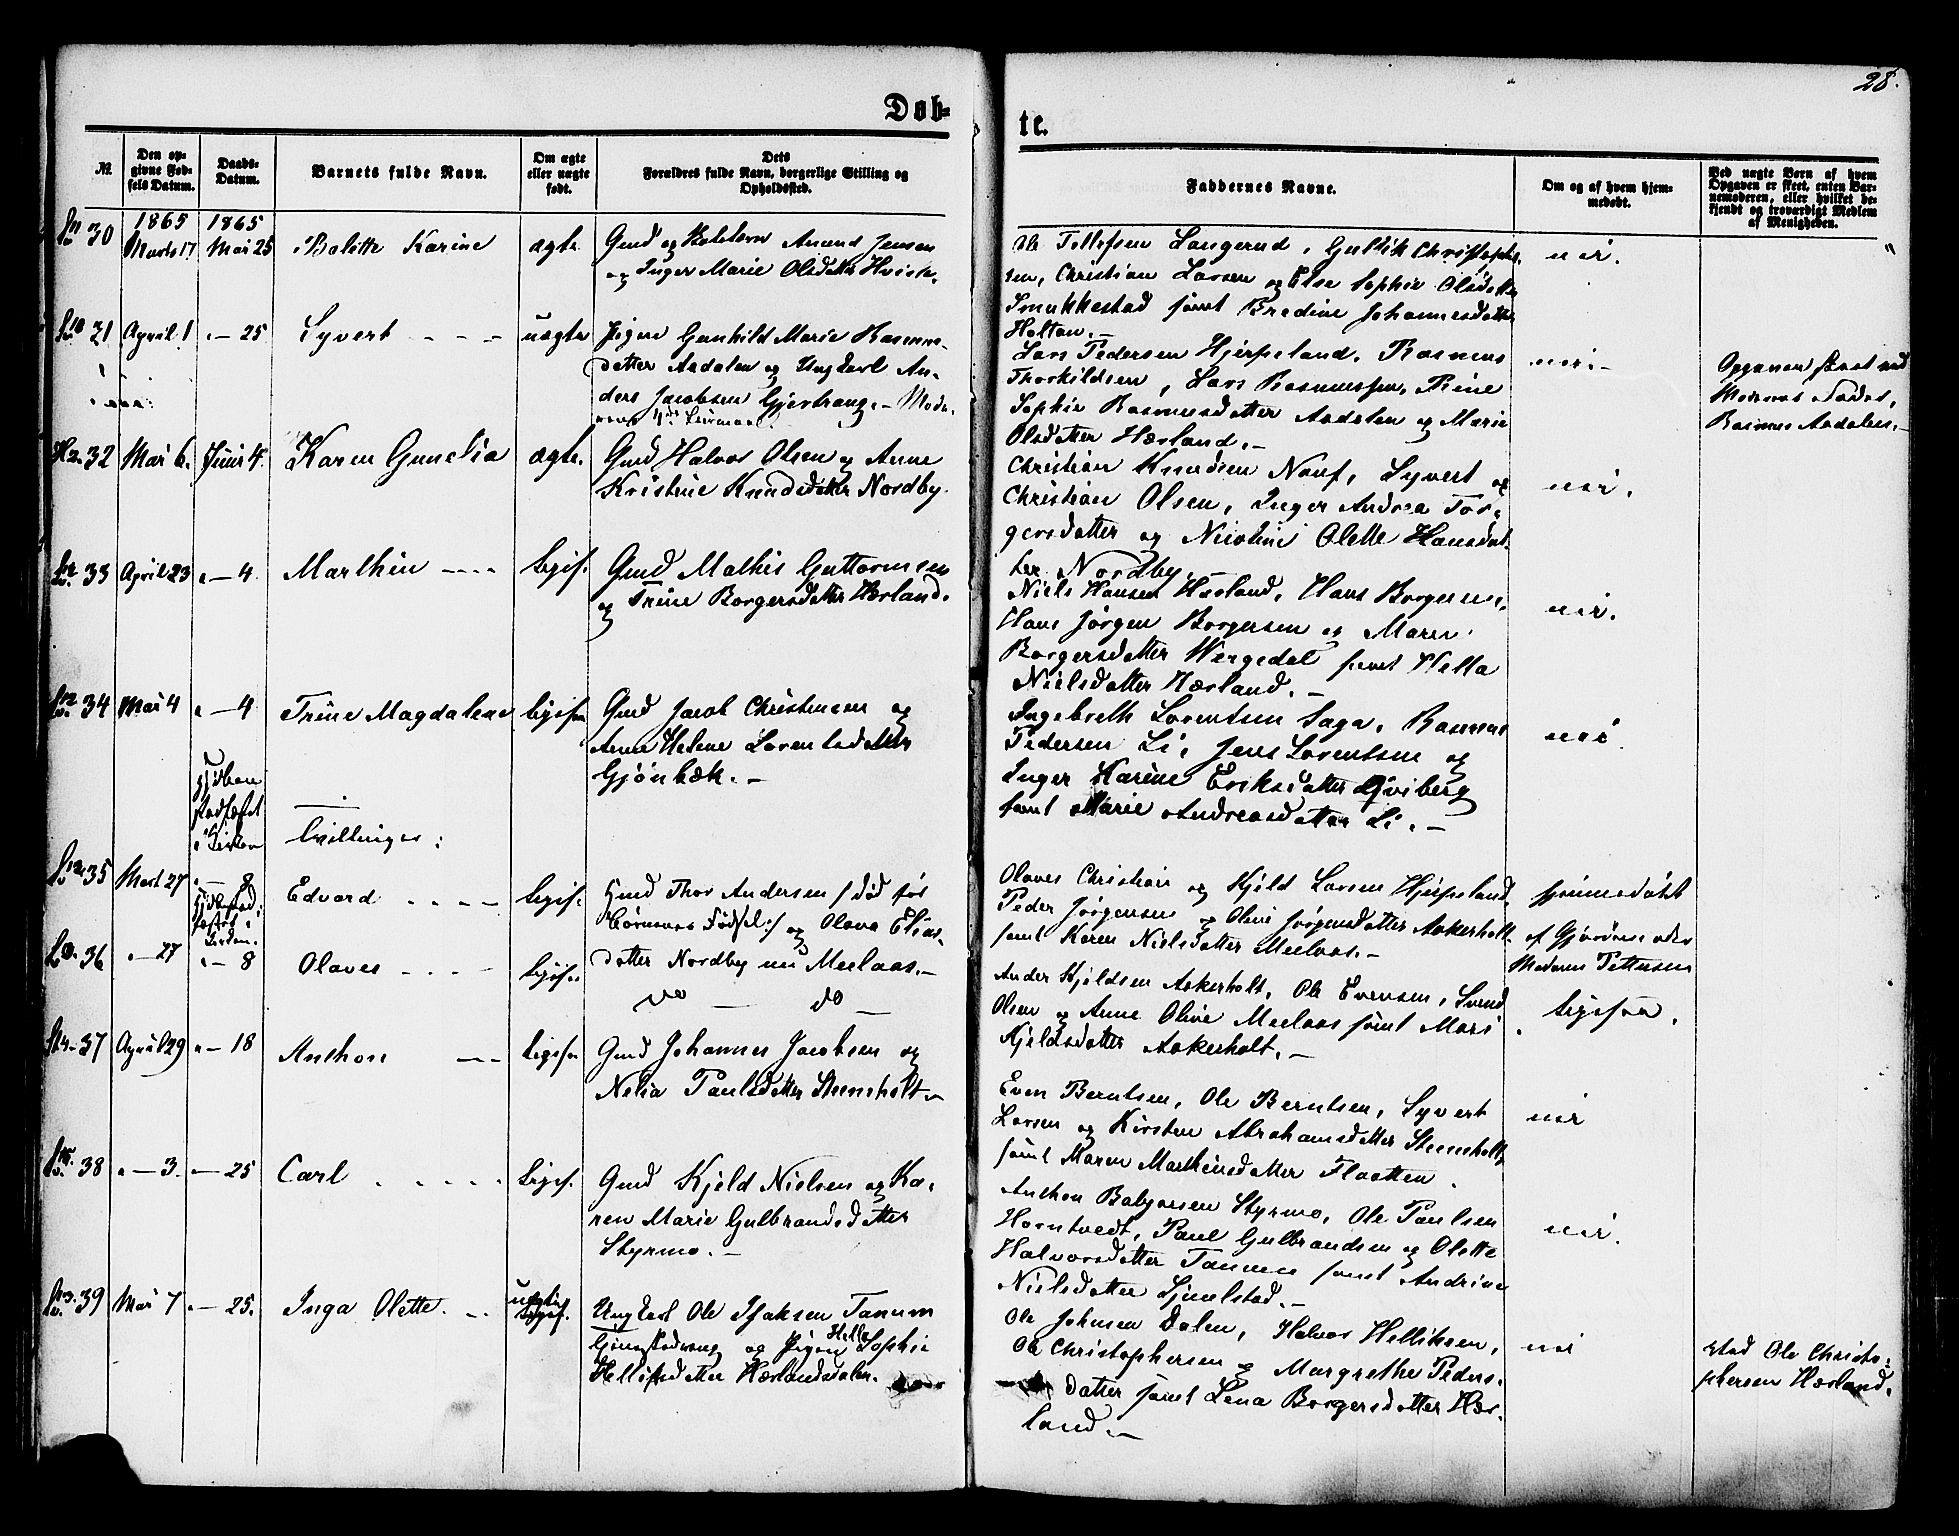 28.
Døb-
te.
№
Den op-
givne Fød-
sels Datum.
Daabs-
Datum.
Barnets fulde Navn.
Om ægte
eller uægte
født.
Dets
Forældres fulde Navn, borgerlige Stilling og
Opholdssted.
Faddernes Navne.
Om og af hvem hjem-
medøbt.
Ved uægte Børn af hvem
Opgaven er skeet, enten Bar-
nemoderen, eller hvilket be-
kjendt og troværdigt Medlem
af Menigheden.
30
1865
Marts 17
1865
Mai 25
Bolette Karine
ægte
Gmd og Anund Jensen
og Inger Marie Olsdatter
Ole Tollefsen Langerud, Gullik Christophe-
sen, Christian Larsen og Else Sophie Olsdatter
Smukkestad samt Bredine Johannesdatter
Holtan.-
nei.
31
April 1
"-25
Syvert
uægte
Pigen Gunhild Marie Rasmus-
datter Aadalen og Ungkarl An-
ders Jacobsen Gjertrang.- Mode-
rens 4de
Lars Pedersen Hjerpeland, Rasmus
Thorkildsen, Lars Rasmussen, Trine
Sophie Rasmusdatter Aadalen og Marie
Olsdatter Hærland.-
nei.-
Opgaven skeet ved
Moderens Fader,
Rasmus Aadalen.-
32
Mai 6.
Juni 4.
Karen Gunelia
ægte.
Gmd Halvor Olsen og Anne
Kristine Knudsdatter Nordby.
Christian Knudsen Nauf, Syvert og
Christian Olsen, Inger Andrea Tor-
gersdatter og Nicoline Olette Hansdat-
ter Nordby.
nei.
33
April 23
"-4
Marthin
liges.
Gmd Mathis Guttormsen
og Trine Borgersdatter Hærland.
Niels Hansen Hærland, Hans Borgersen,
Hans Jørgen Borgersen og Maren
Borgersdatter Wergedal samt Hella
Nielsdatter Hærland.-
nei.
34
Mai 4
"-4
Trine Magdalene
ligesaa
Gmd Jacob Christensen og
Anne Helene Lorentsdatter
Gjönbæk.-
Ingebreth Lorentsen Saga, Rasmus
Pedersen Li, Jens Lorentsen og
Inger Karine Eriksdatter Qviberg
samt Marie Andreasdatter Li.-
nei
Tvillinger:
35
Mart 27
Hjdben
stadfæst
i Kirken
"-8
Edvard
ligesf.
Gmd Thor Andersen /: død før
Børnenes Fødsel :/ og Olava Elias-
datter Nordby nu Meelaas.-
Olaves Christian og Kjeld Larsen Hjerpeland,
Peder Jørgensen og Oline Jørgensdatter Aakerholt
samt Karen Nielsdatter Meelaas.-
hjemmedøbt
af Gjordmoder
Madam Pettersen
36
"-27
"-8
Olaves
ligesaa
do - do -
Anders Kjeldsen Aakerholt, Ole Evensen, Svend
Olsen og Anne Olive Meelaas samt Mari
Kjeldsdatter Aakerholt.-
ligesaa.
37
April 29
"-18
Anthon
ligesaa
Gmd Johannes Jacobsen og
Nelia Paulsdatter Steensholt.-
Even Berntsen, Ole Berntsen, Syvert
Larsen og Kirsten Abrahamsdatter Steensholt,
samt Maren Mathisdatter Flaatten.
nei
38
"-3.
"-25
Carl
ligesf.
Gmd Kjeld Nielsen og Ka-
ren Marie Gulbrandsdatter
Styrmo.-
Anthon Styrmo, Ole Paulsen
Horntvedt, Paul Gulbrandsen og Olette
Halvorsdatter Tannen samt Andrine
Nielsdatter Ljunestad.-
nei.
39
Mai 7
"-25.
Inga Olette
uægte
Ungkarl Ole Isaksen Tanum
og Pigen Helle Sophie
Helliksdatter Hærlandsdalen.
Ole Johnsen Dalen, Halvor Helliksen,
Ole Christophersen og Margrethe Peders-
datter samt Lena Borgersdatter Hær-
land.-
nei
ved Ole Christo-
phersen Hærland.